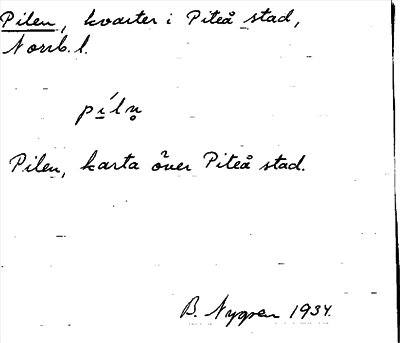 Pilen, kvarter i Piteå stad,
Norrb. l.
pí̱ln̥
Pilen, karta över Piteå stad.
B. Nygren 1934.